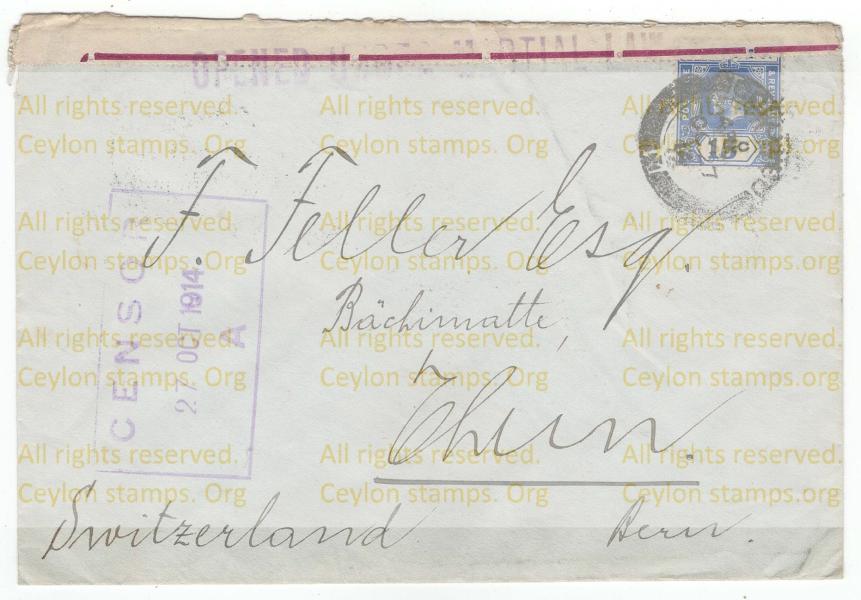 OPENED UNDER MARTIAL LAW
15c
CENSOR
27 OCT 1914
A
F. Feller Esq.
Bächimatte,
Thun.
Switzerland Bern.
All rights reserved. All rights reserved. All rights reserved.
Ceylon stamps. Org Ceylon stamps. Org Ceylon stamps. Org
All rights reserved. All rights reserved. All rights reserved.
Ceylon stamps. Org Ceylon stamps. Org Ceylon stamps. Org
All rights reserved. All rights reserved. All rights reserved.
Ceylon stamps. Org Ceylon stamps. Org Ceylon stamps. Org
All rights reserved. All rights reserved. All rights reserved.
Ceylon stamps. Org Ceylon stamps. Org Ceylon stamps. Org